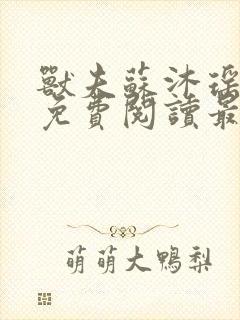 獸夫蘇沐瑤
免費閱讀最
萌萌大鴨梨